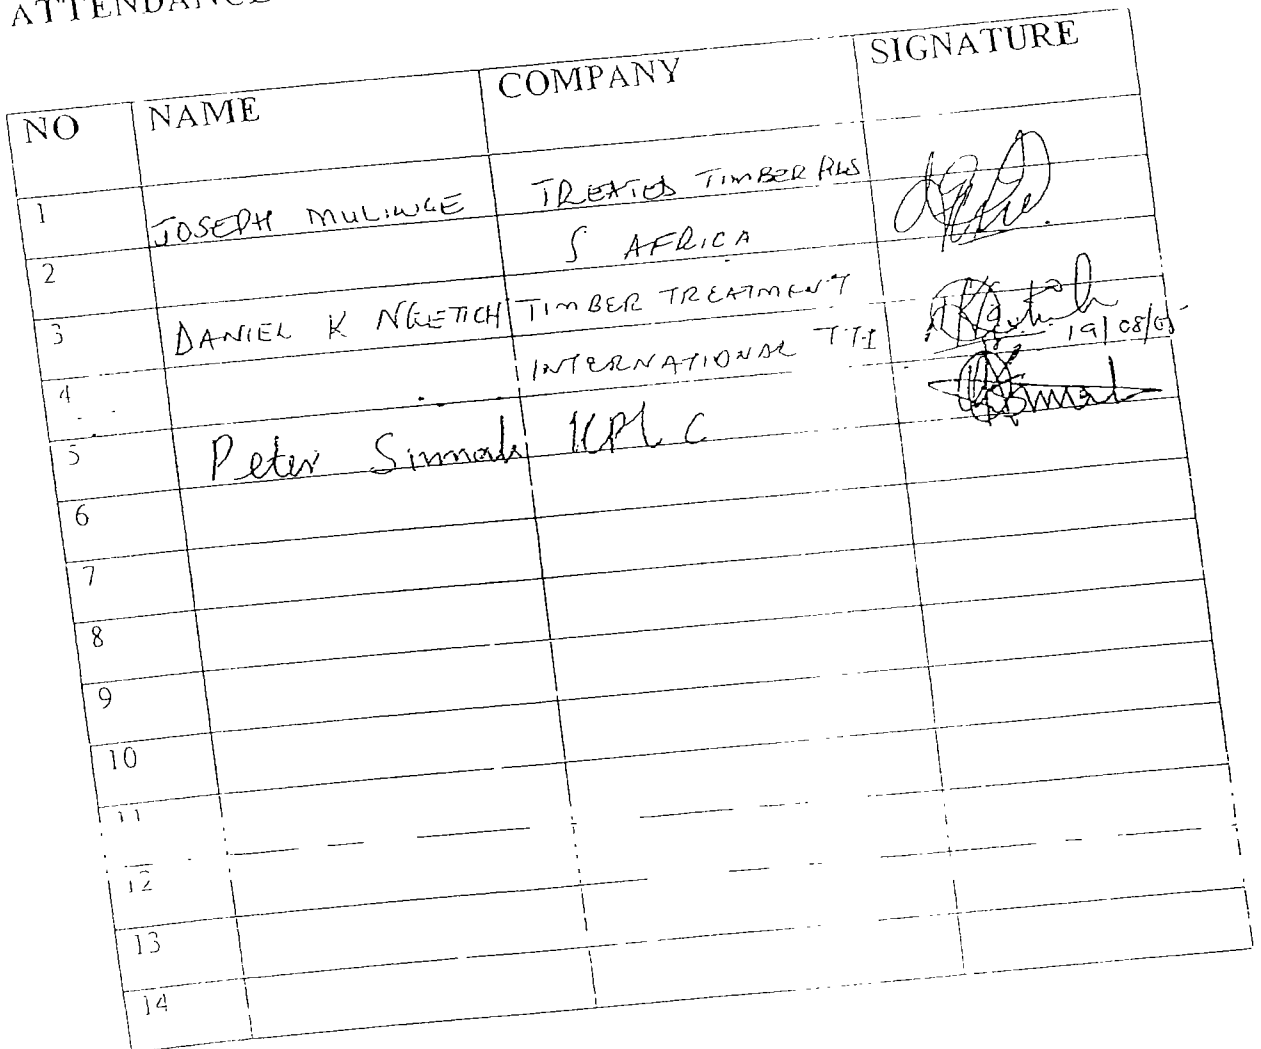 ATTENDANCE
NO NAME COMPANY SIGNATURE
1 JOSEPH MULINGE TREATED TIMBER
2 S AFRICA
3 DANIEL K NGETICH TIMBER TREATMENT
4 INTERNATIONAL TTI 19/08/05
5 Peter Simmah KPLC
6
7
8
9
10
11
12
13
14